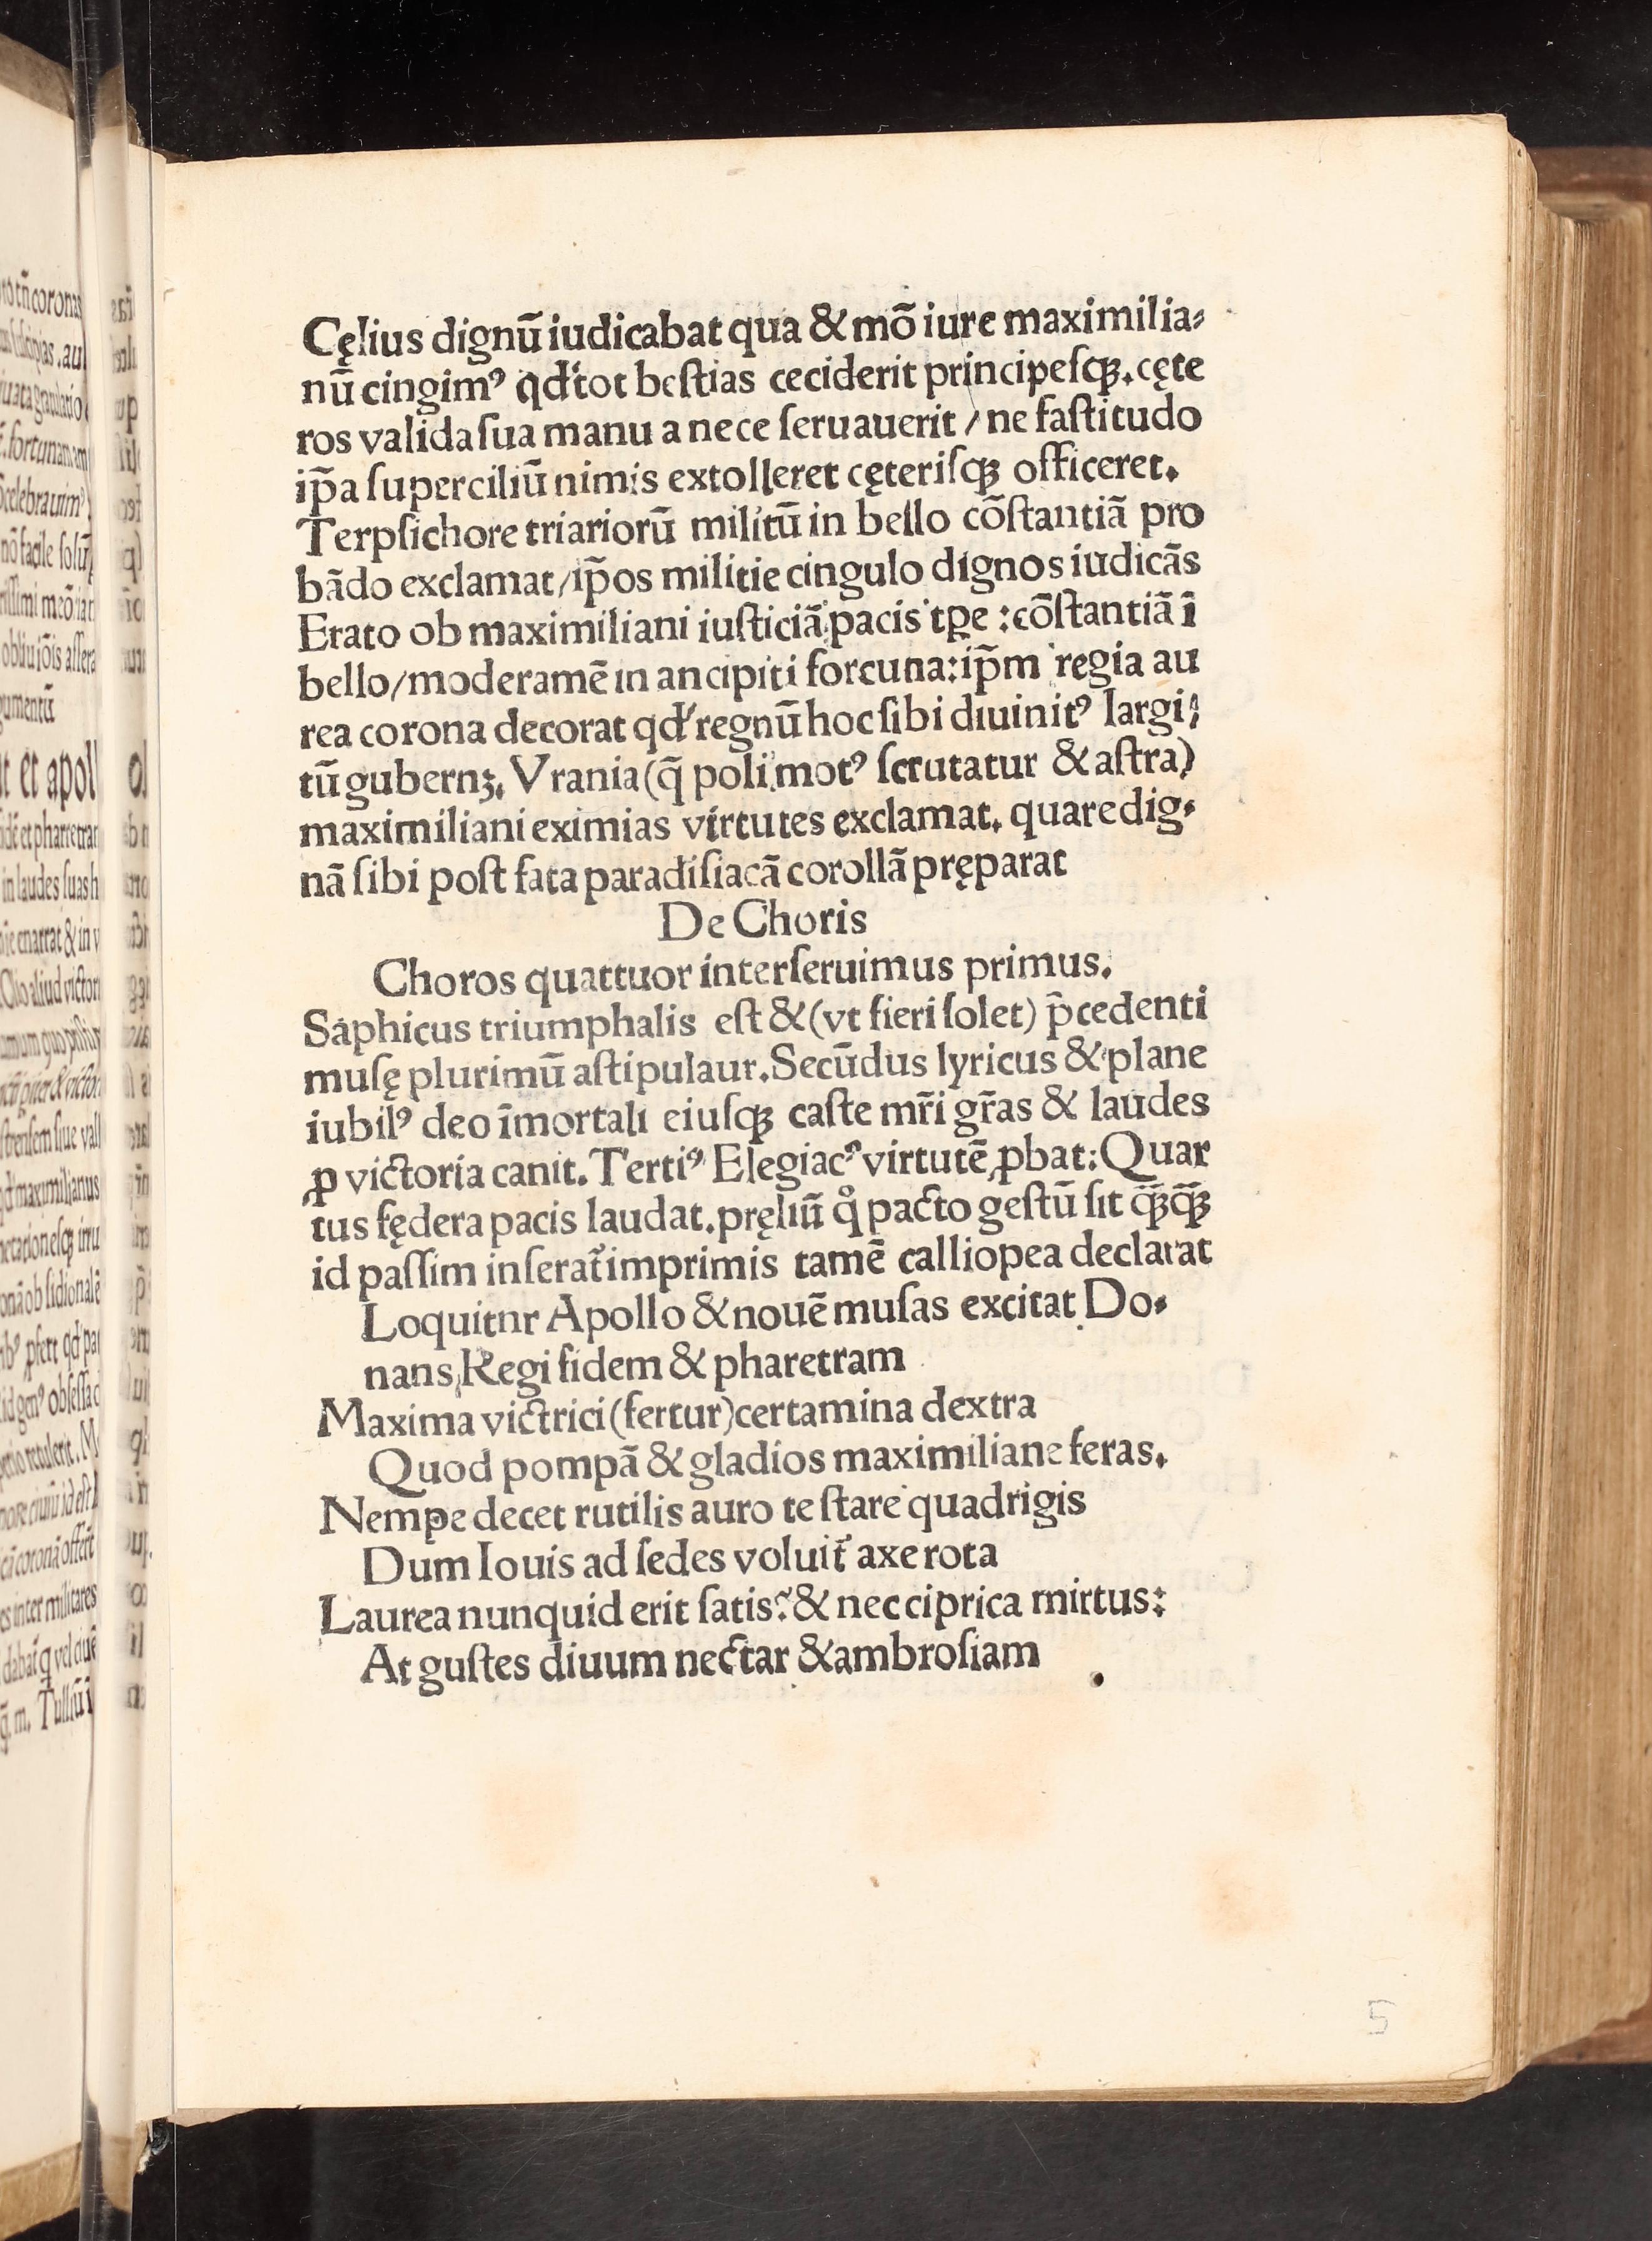 Cęlius dignū iudicabat qua & mō iure maximilia⸗
nū cingimꝰ qd' tot bestias ceciderit principesqꝫ. cęte
ros valida sua manu a nece seruauerit / ne fastitudo
ip̄a superciliū nimis extolleret cęterisqꝫ officeret.
Terpsichore triariorū militū in bello cōstantiā pro
bādo exclamat / ip̄os militie cingulo dignos iudicās
Erato ob maximiliani iusticiā pacis tꝑe : cōstantiā ī
bello / moderamē in ancipiti forcuna: ip̄m regia au
rea corona decorat qd' regnū hoc sibi diuinitꝰ largi⸗
tū gubernꝫ. Vrania (q̄ poli motꝰ scrutatur & astra)
maximiliani eximias virtutes exclamat. quare dig⸗
nā sibi post fata paradisiacā corollā pręparat
De Choris
Choros quattuor interseruimus primus.
Saphicus triumphalis est & (vt fieri solet) p̄cedenti
musę plurimū astipulaur. Secūdus lyricus & plane
iubilꝰ deo īmortali eiusqꝫ caste mr̄i gr̄as & laudes
ꝓ victoria canit. Tertiꝰ Elegiacꝰ virtutē ꝓbat: Quar
tus fędera pacis laudat. pręliū qͦ pacto gestū sit qꝫ̄qꝫ̄
id passim inserat᷑ imprimis tamē calliopea declarat
Loquitnr Apollo & nouē musas excitat Do⸗
nans Regi fidem & pharetram
Maxima victrici (fertur) certamina dextra
Quod pompā & gladios maximiliane feras.
Nempe decet rutilis auro te stare quadrigis
Dum Iouis ad sedes voluit᷑ axe rota
Laurea nunquid erit satis? & nec ciprica mirtus:
At gustes diuum nectar & ambrosiam
5